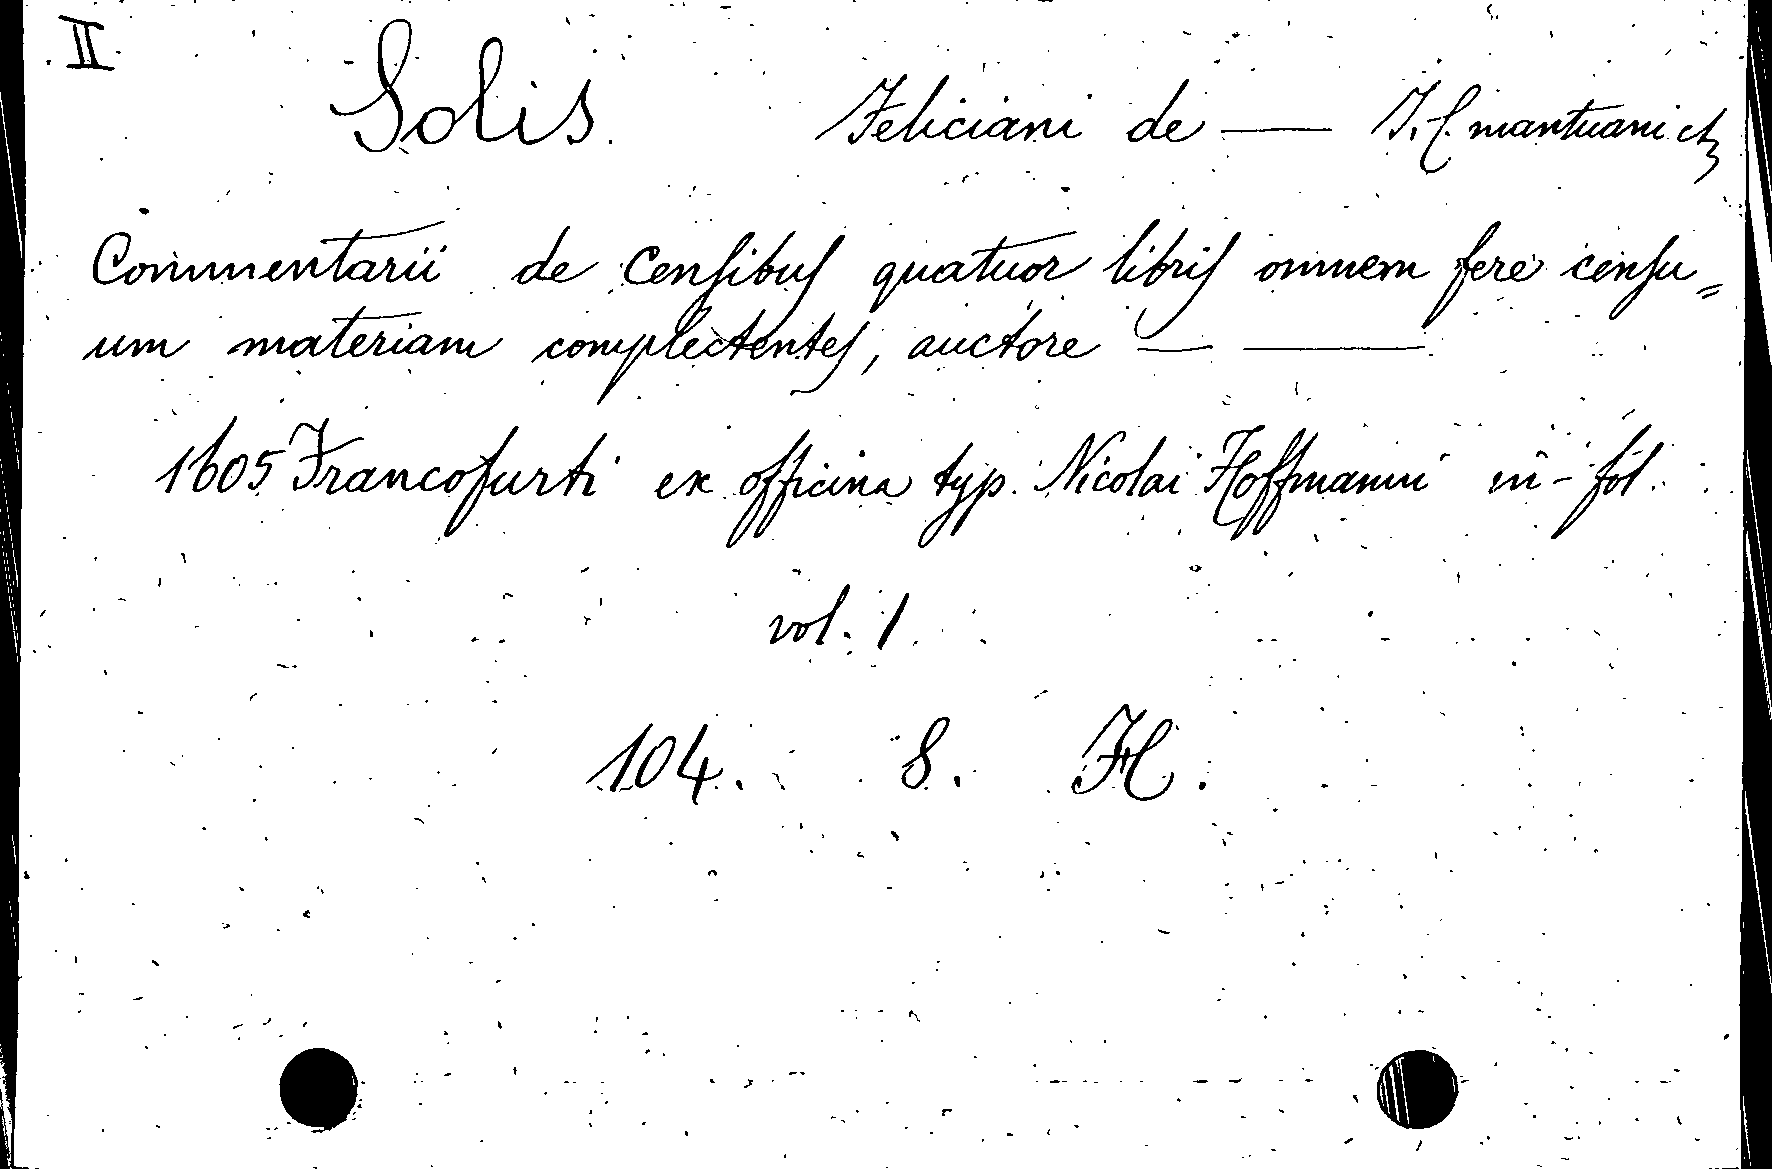 II
Solis. Feliciani de — J. C. mantuani etz
Commentarii de Censibus quatuor libris omnem fere censu=
um materiam complectentes, auctore — —
1605 Francofurti ex officina typ. Nicolai Hoffmanni in-fol.
vol. 1.
104. 8. H.